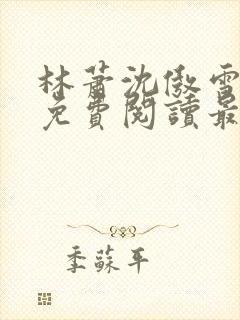 林蕭沈傲雪
免費閱讀最
季蘇平